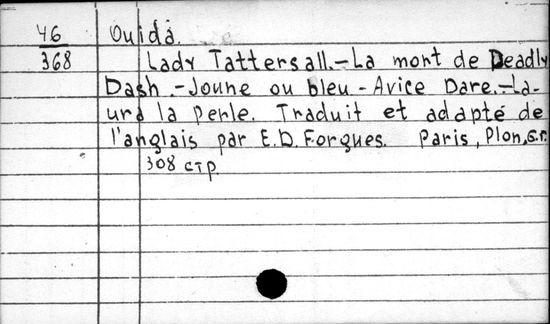 46
368
Ouida.
Lady Tattersall.-La mont de Deadly
Dash.-Joune ou bleu.-Avice Dare.-La-
ura la perle. Traduit et adapté de
l'anglais par E.D.Forgues. Paris, Plon, s.г.
308 стр